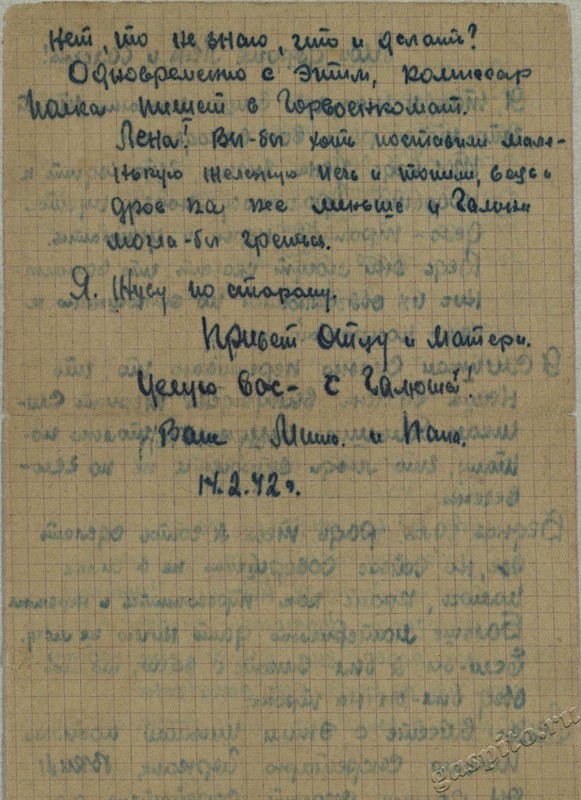 Нет, что не знаю, что и делать?
Одновременно с этим, комиссар
полка пишет в Горвоенкомат.
Лена! Вы-бы хоть поставили мале-
нькую железную печь и топили, ведь
дров па же меньше и Галочка
могла-бы греться.
Я. Живу по старому.
Привет отцу и матери.
Целую вас - с Галюшей!
Ваш Миша. и Папа.
14.2.42г.
gaspito.ru